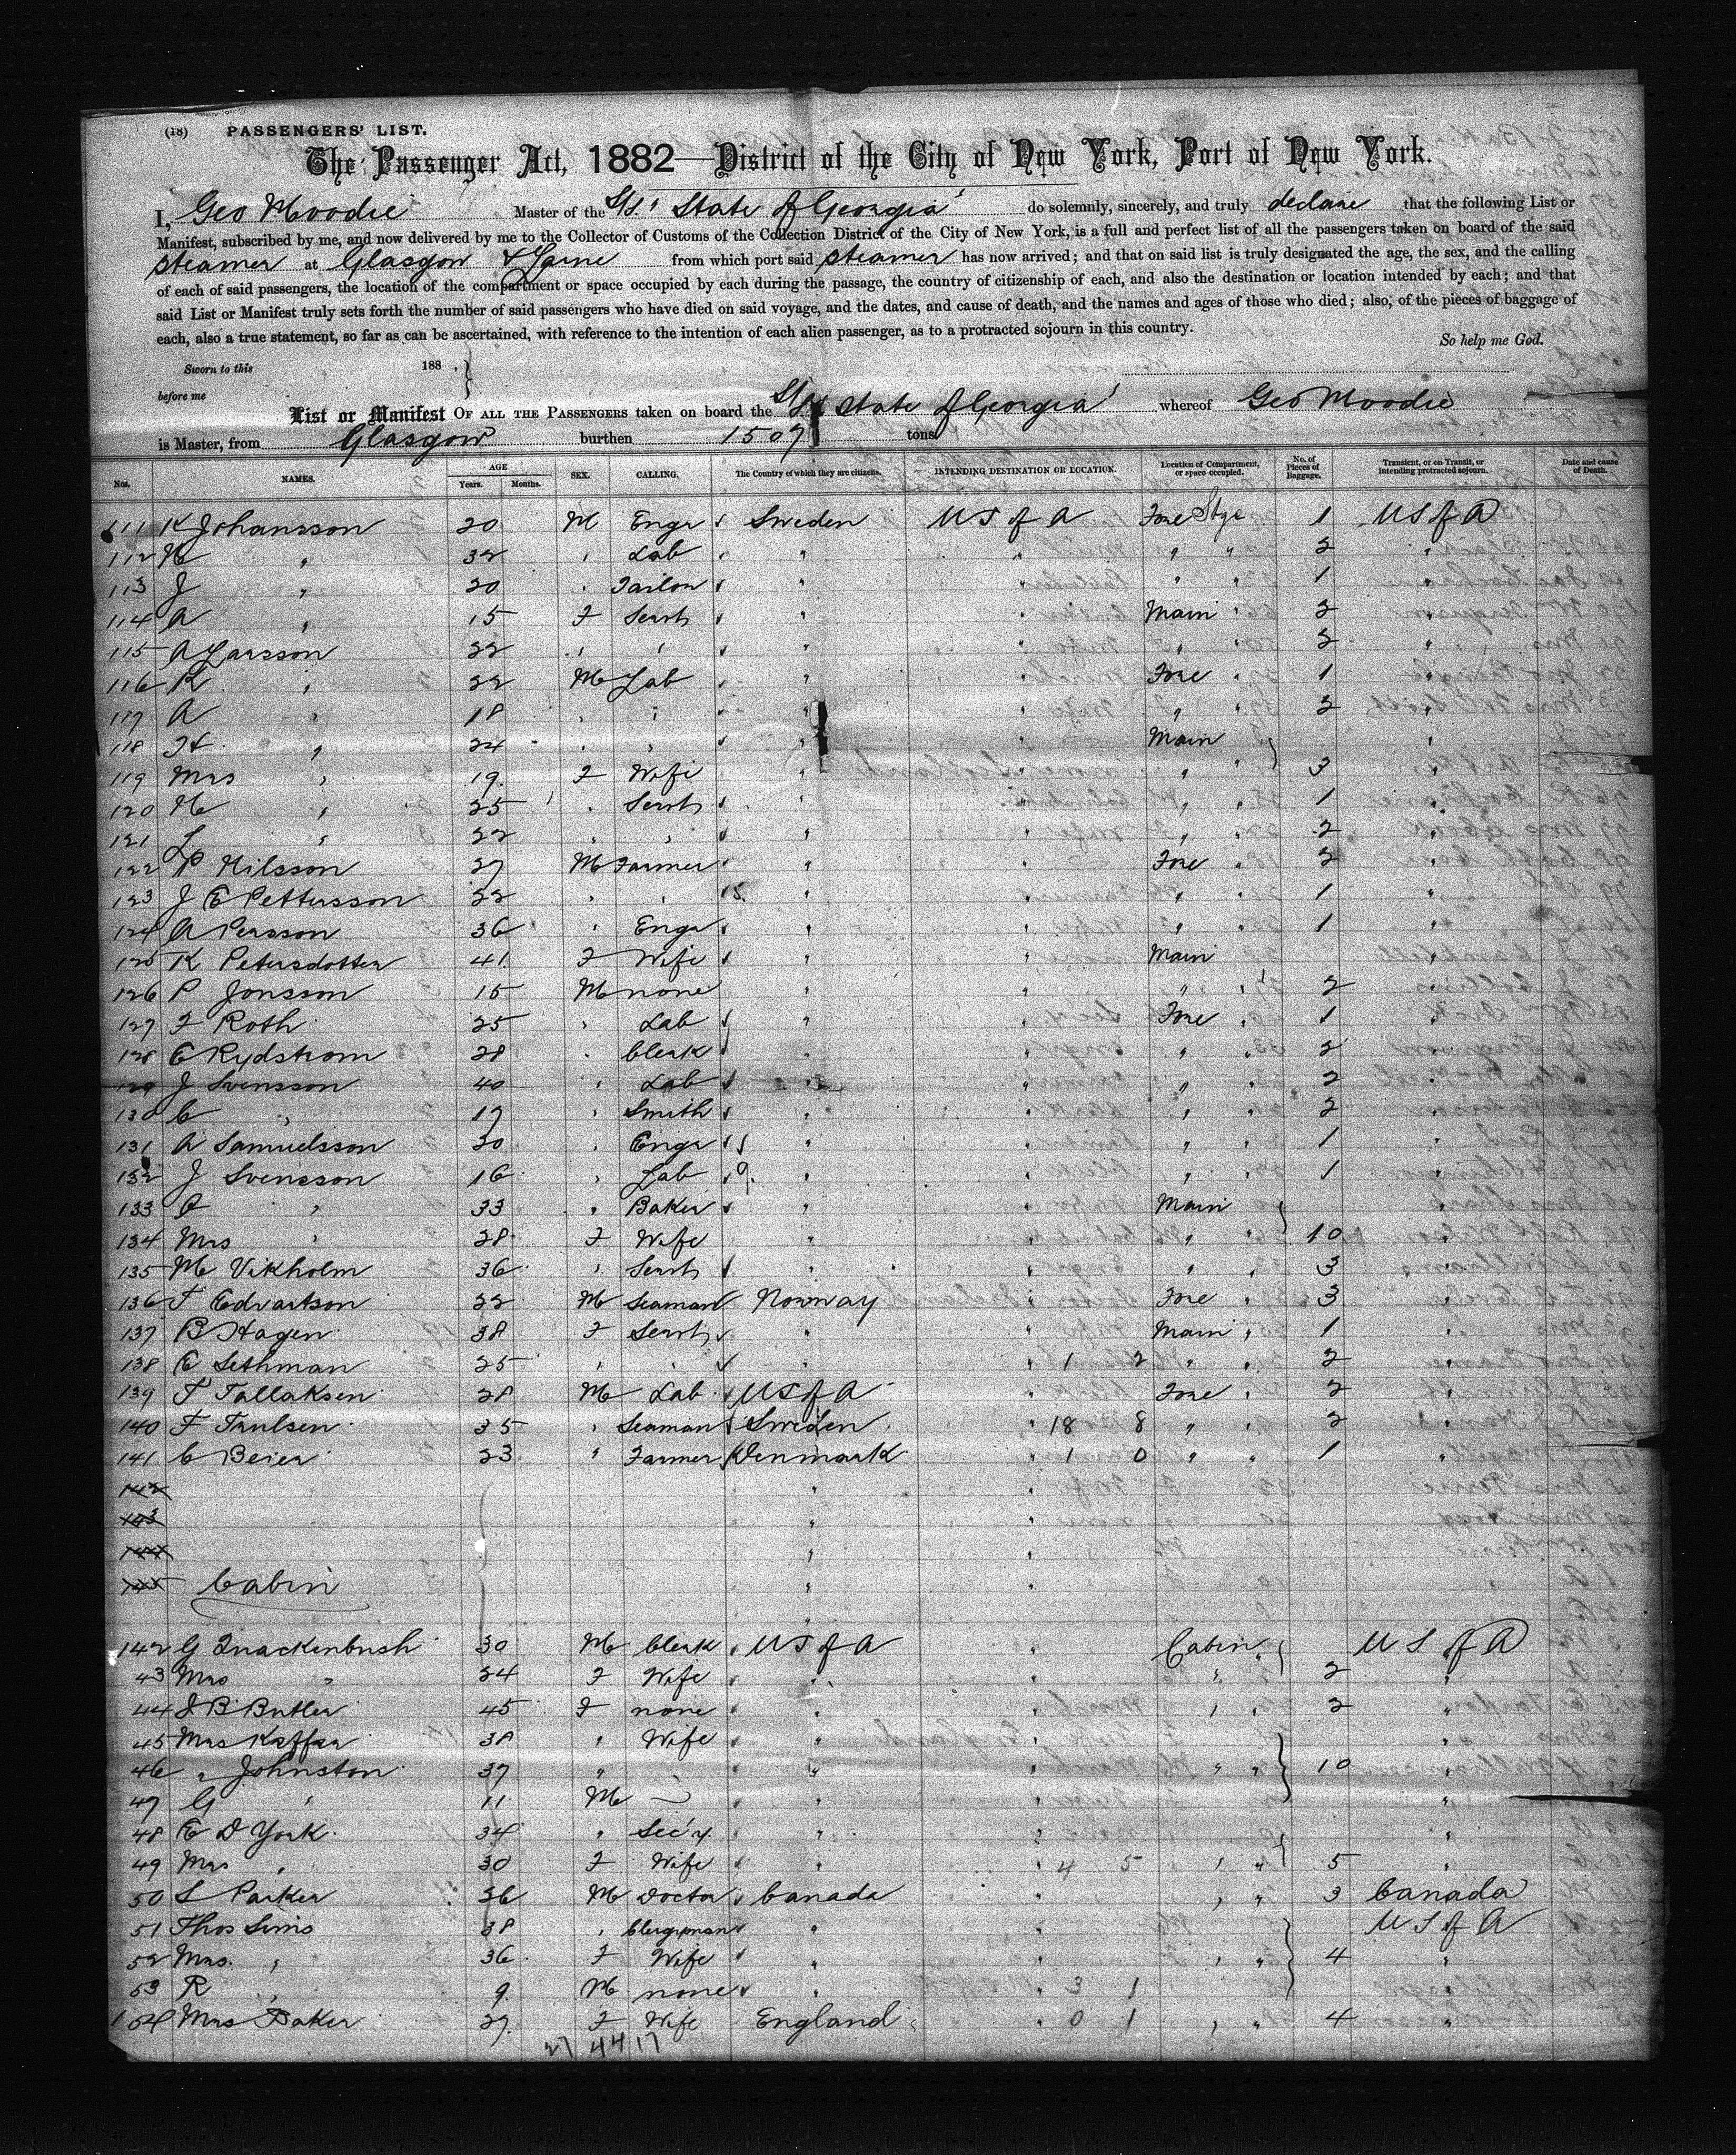 (18) PASSENGERS' LIST.
The Passenger Act, 1882—District of the City of New York, Port of New York.
I, Geo Moodie Master of the S/S. "State of Georgia" do solemnly, sincerely, and truly declare that the following List or
Manifest, subscribed by me, and now delivered by me to the Collector of Customs of the Collection District of the City of New York, is a full and perfect list of all the passengers taken on board of the said
steamer at Glasgow & Larne from which port said steamer has now arrived; and that on said list is truly designated the age, the sex, and the calling
of each of said passengers, the location of the compartment or space occupied by each during the passage, the country of citizenship of each, and also the destination or location intended by each; and that
said List or Manifest truly sets forth the number of said passengers who have died on said voyage, and the dates, and cause of death, and the names and ages of those who died; also, of the pieces of baggage of
each, also a true statement, so far as can be ascertained, with reference to the intention of each alien passenger, as to a protracted sojourn in this country. So help me God.
Sworn to this 188 .
before me
List or Manifest OF ALL THE PASSENGERS taken on board the S/S "State of Georgia" whereof Geo Moodie
is Master, from Glasgow burthen 1509 tons
Nos. NAMES. AGE Years. Months. SEX. CALLING. The Country of which they are citizens. INTENDING DESTINATION OR LOCATION. Location of Compartment, or space occupied. No. of Pieces of Baggage. Transient, or on Transit, or intending protracted sojourn. Date and cause of Death.
111 K Johansson 20 M Engr Sweden US of A Fore Stge 1 US of A
112 N " 32 " Lab " " " " 2 "
113 J " 20 " Tailor " " " " 1 "
114 A " 15 F Servt " " Main " 2 "
115 A Larsson 22 " " " " " " 2 "
116 K " 22 M Lab " " Fore " 1 "
117 A " 18 " " " " " " 2 "
118 " 24 " " " " Main "
119 Mrs " 19 F Wife " " " " 3 "
120 " 25 " Servt " " " " 1 "
121 L " 22 " " " " " " 2 "
122 P Nilsson 27 M Farmer " " Fore " 2 "
123 J E Pettersson 22 " " 15 " " " " 1 "
124 A Persson 36 " Engr " " " " 1 "
125 K Petersdotter 41 F Wife " " Main "
126 P Jonsson 15 M none " " " " 2 "
127 F Roth 25 " Lab " " Fore " 1 "
128 E Rydstrom 28 " Clerk " " " " 2 "
129 J Svensson 40 " Lab " " " " 2 "
130 C " 19 " Smith " " " " 2 "
131 A Samuelsson 20 " Engr " " " " 1 "
132 J Svensson 16 " Lab 9 " " " " 1 "
133 " 33 " Baker " " Main "
134 Mrs " 28 F Wife " " " " 10 "
135 M Vikholm 36 " Servt " " " " 3 "
136 T Edvartson 22 M Seaman Norway " Fore " 3 "
137 B Hagen 38 F Servt " " Main " 1 "
138 E Sethman 25 " " " " 1 2 " " 2 "
139 T Tallaksen 28 M Lab US of A " Fore " 2 "
140 F Trulsen 35 " Seaman Sweden " 18 8 " " 2 "
141 C Beier 23 " Farmer Denmark " 1 0 " " 1 "
142 "
143 "
144 " "
145 Cabin " "
142 G Quackenbush 30 M Clerk US of A " Cabin " US of A
43 Mrs " 24 F Wife " " " " 2 "
44 J B Butler 45 F none " " " " 2 "
45 Mrs Keffer 38 " Wife " " "
46 " Johnston 37 " " " " " " 10 "
47 G " 11 M " " "
48 E D York 34 " Sec'y " " "
49 Mrs " 30 F Wife " " 4 5 " " 5 "
50 S Parker 26 M Doctor Canada " " " 3 Canada
51 Thos Sims 38 " Clergyman " " US of A
52 Mrs " 36 F Wife " " " " 4 "
53 R " 9 M none " " 3 1 "
154 Mrs Baker 27 F Wife England " 0 1 " " 4 "
27 44 17